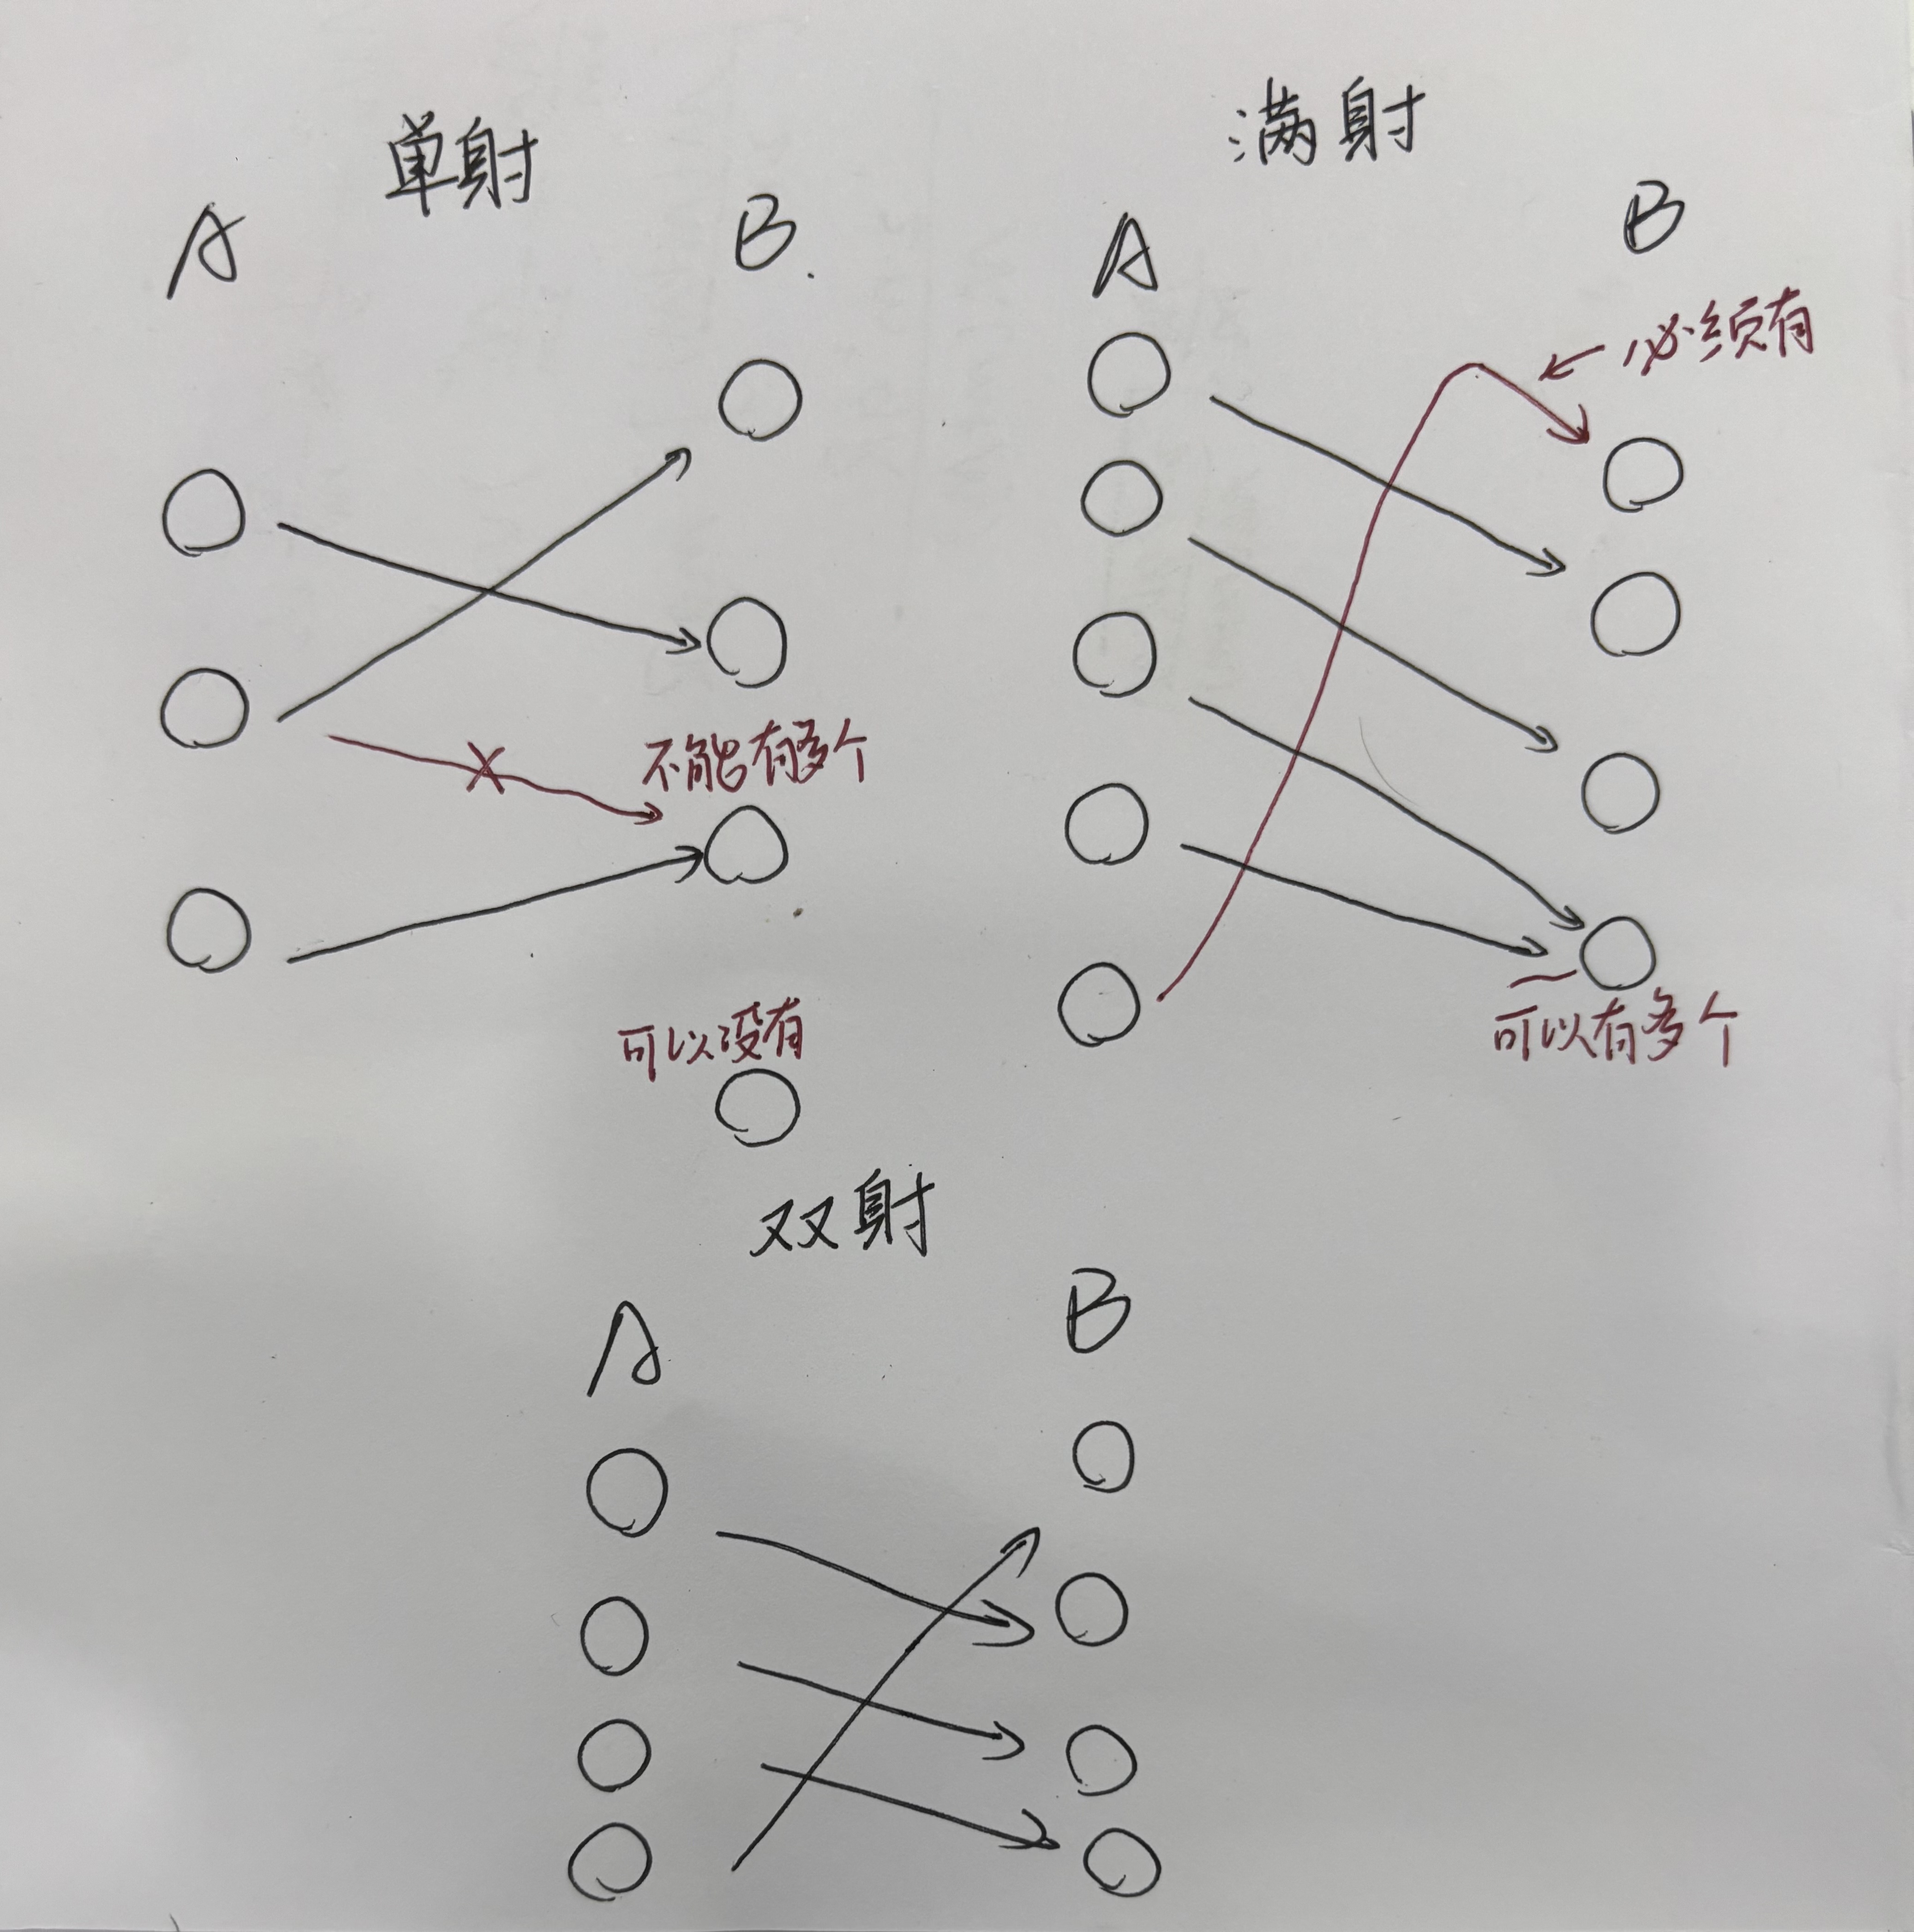 单射
A
B
不能有多个
可以没有
满射
A
B
必须有
可以有多个
双射
A
B